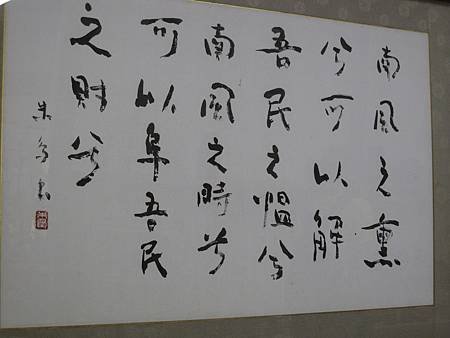 南風之薰
兮可以解
吾民之慍兮
南風之時兮
可以阜吾民
之財兮